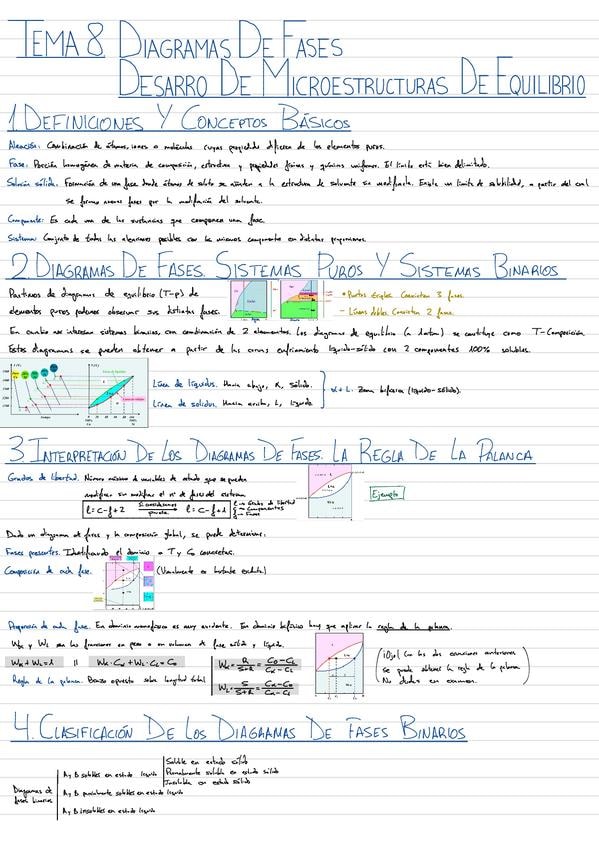 TEMA 8 DIAGRAMAS DE FASES
DESARRO DE MICROESTRUCTURAS DE EQUILIBRIO
1. DEFINICIONES Y CONCEPTOS BÁSICOS
Aleación: Combinación de átomos, iones o moléculas cuyas propiedades difieren de los elementos puros.
Fase: Porción homogénea de materia de composición, estructura y propiedades físicas y químicas uniformes. El límite está bien delimitado.
Solución sólida: Formación de una fase donde átomos de soluto se añaden a la estructura de solvente sin modificarla. Existe un límite de solubilidad, a partir del cual
se forman nuevas fases por la modificación del solvente.
Componente: Es cada una de las sustancias que componen una fase.
Sistema: Conjunto de todas las aleaciones posibles con los mismos componentes en distintas proporciones.
2. DIAGRAMAS DE FASES. SISTEMAS PUROS Y SISTEMAS BINARIOS
Partimos de diagramas de equilibrio (T-p) de
elementos puros podemos observar sus distintas fases.
• Puntos triples: Coexisten 3 fases.
- Líneas dobles: Coexisten 2 fases.
En cambio nos interesan sistemas binarios, con combinación de 2 elementos. Los diagramas de equilibrio (a 1atm) se constituye como T-Composición.
Estos diagramas se pueden obtener a partir de las curvas enfriamiento líquido-sólido con 2 componentes 100% solubles.
Línea de líquidus. Hacia abajo, α, sólido.
Línea de solidus. Hacia arriba, L, líquido
α + L. Zona bifásica (líquido-sólido).
3. INTERPRETACIÓN DE LOS DIAGRAMAS DE FASES. LA REGLA DE LA PALANCA
Grados de libertad. Número máximo de variables de estado que se pueden
modificar sin modificar el nº de fases del sistema
Ejemplo
Dado un diagrama de fases y la composición global, se puede determinar:
Fases presentes. Identificando el dominio a T y C₀ concretas.
Composición de cada fase. (Visualmente es bastante evidente)
Proporción de cada fase. En dominio monofásico es muy evidente. En dominio bifásico hay que aplicar la regla de la palanca.
Wα y WL son las fracciones en peso o en volumen de fase sólida y líquida.
Wα + WL = 1 || Wα · Cα + WL · CL = C₀
Wα = R/S+R = C₀-CL/Cα-CL
Regla de la palanca. Brazo opuesto sobre longitud total
WL = S/S+R = Cα-C₀/Cα-CL
(¡Ojo! Con las dos ecuaciones anteriores
se puede obtener la regla de la palanca
No dudes en examen.)
4. CLASIFICACIÓN DE LOS DIAGRAMAS DE FASES BINARIOS
Diagramas de
fases binarios
A y B solubles en estado líquido
Soluble en estado sólido
Parcialmente soluble en estado sólido
Insoluble en estado sólido
A y B parcialmente solubles en estado líquido
A y B insolubles en estado líquido